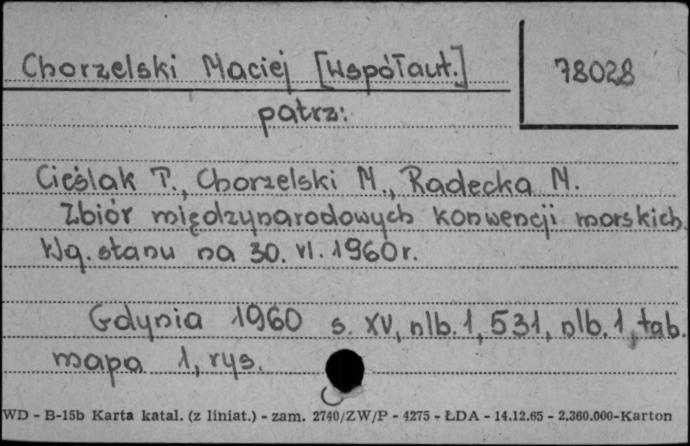 Chorzelski Maciej [Współaut.]
78028
patrz:
Cieślak T., Chorzelski M., Radecka M.
Zbiór międzynarodowych konwencji morskich.
Wg. stanu na 30. VI. 1960r.
Gdynia 1960 s. XV, nlb. 1, 531, nlb. 1, tab.
mapa 1, rys.
WD - B-15b Karta katal. (z liniat.) - zam. 2740/ZW/P - 4275 - ŁDA - 14.12.65 - 2,360.000-Karton